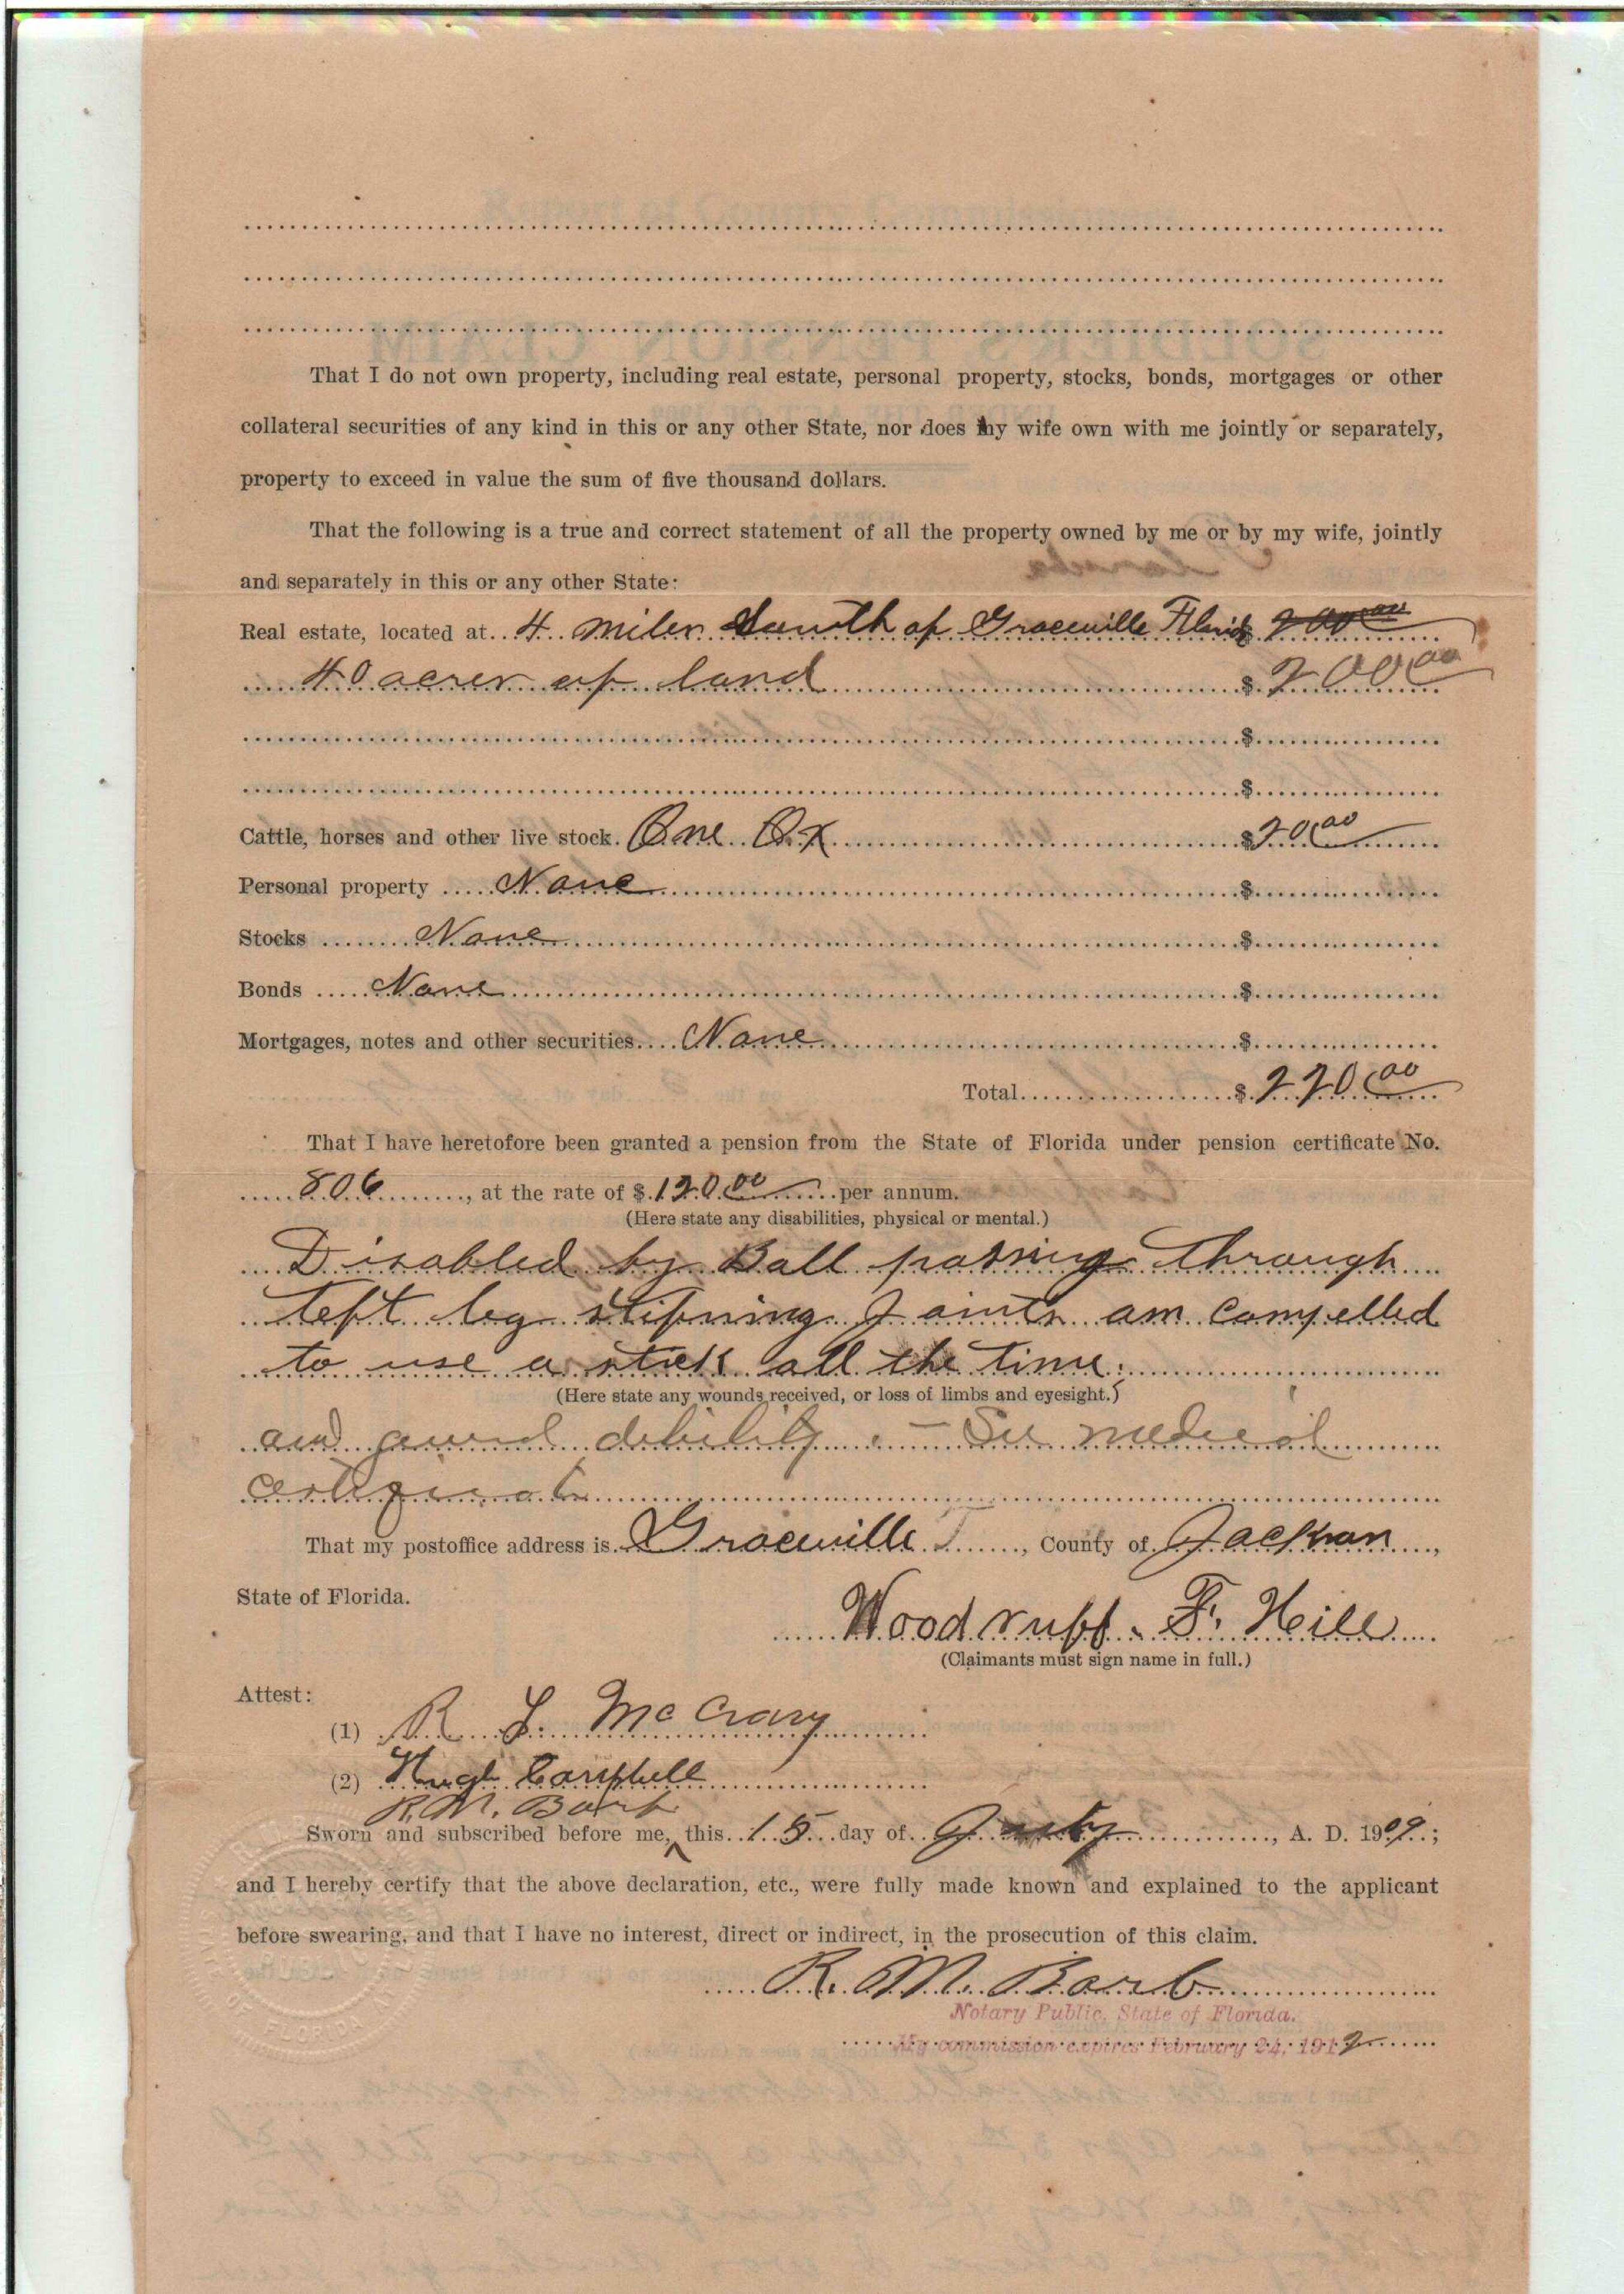 That I do not own property, including real estate, personal property, stocks, bonds, mortgages or other
collateral securities of any kind in this or any other State, nor does my wife own with me jointly or separately,
property to exceed in value the sum of five thousand dollars.
That the following is a true and correct statement of all the property owned by me or by my wife, jointly
and separately in this or any other State:
Real estate, located at 4 miles South of Graceville $ 200.00
40 acres of land $ 200.00
$
$
Cattle, horses and other live stock. One Ox $ 20.00
Personal property None $
Stocks None $
Bonds None $
Mortgages, notes and other securities None $
Total $ 220.00
That I have heretofore been granted a pension from the State of Florida under pension certificate No.
806, at the rate of $ 120.00 per annum.
(Here state any disabilities, physical or mental.)
Disabled by Ball passing through
left leg stifning Joints am compelled
to use a stick all the time;
(Here state any wounds received, or loss of limbs and eyesight.)
and general debility. — See medical
certificate
That my postoffice address is Graceville, County of Jackson,
State of Florida.
Woodruff F. Hill
(Claimants must sign name in full.)
Attest:
(1) R. L. McCrary
(2) Hugh Campbell
R. M. Barb
Sworn and subscribed before me, this 15 day of July, A. D. 1909;
and I hereby certify that the above declaration, etc., were fully made known and explained to the applicant
before swearing, and that I have no interest, direct or indirect, in the prosecution of this claim.
R. M. Barb
Notary Public, State of Florida.
My commission expires February 24, 1912
FLORIDA